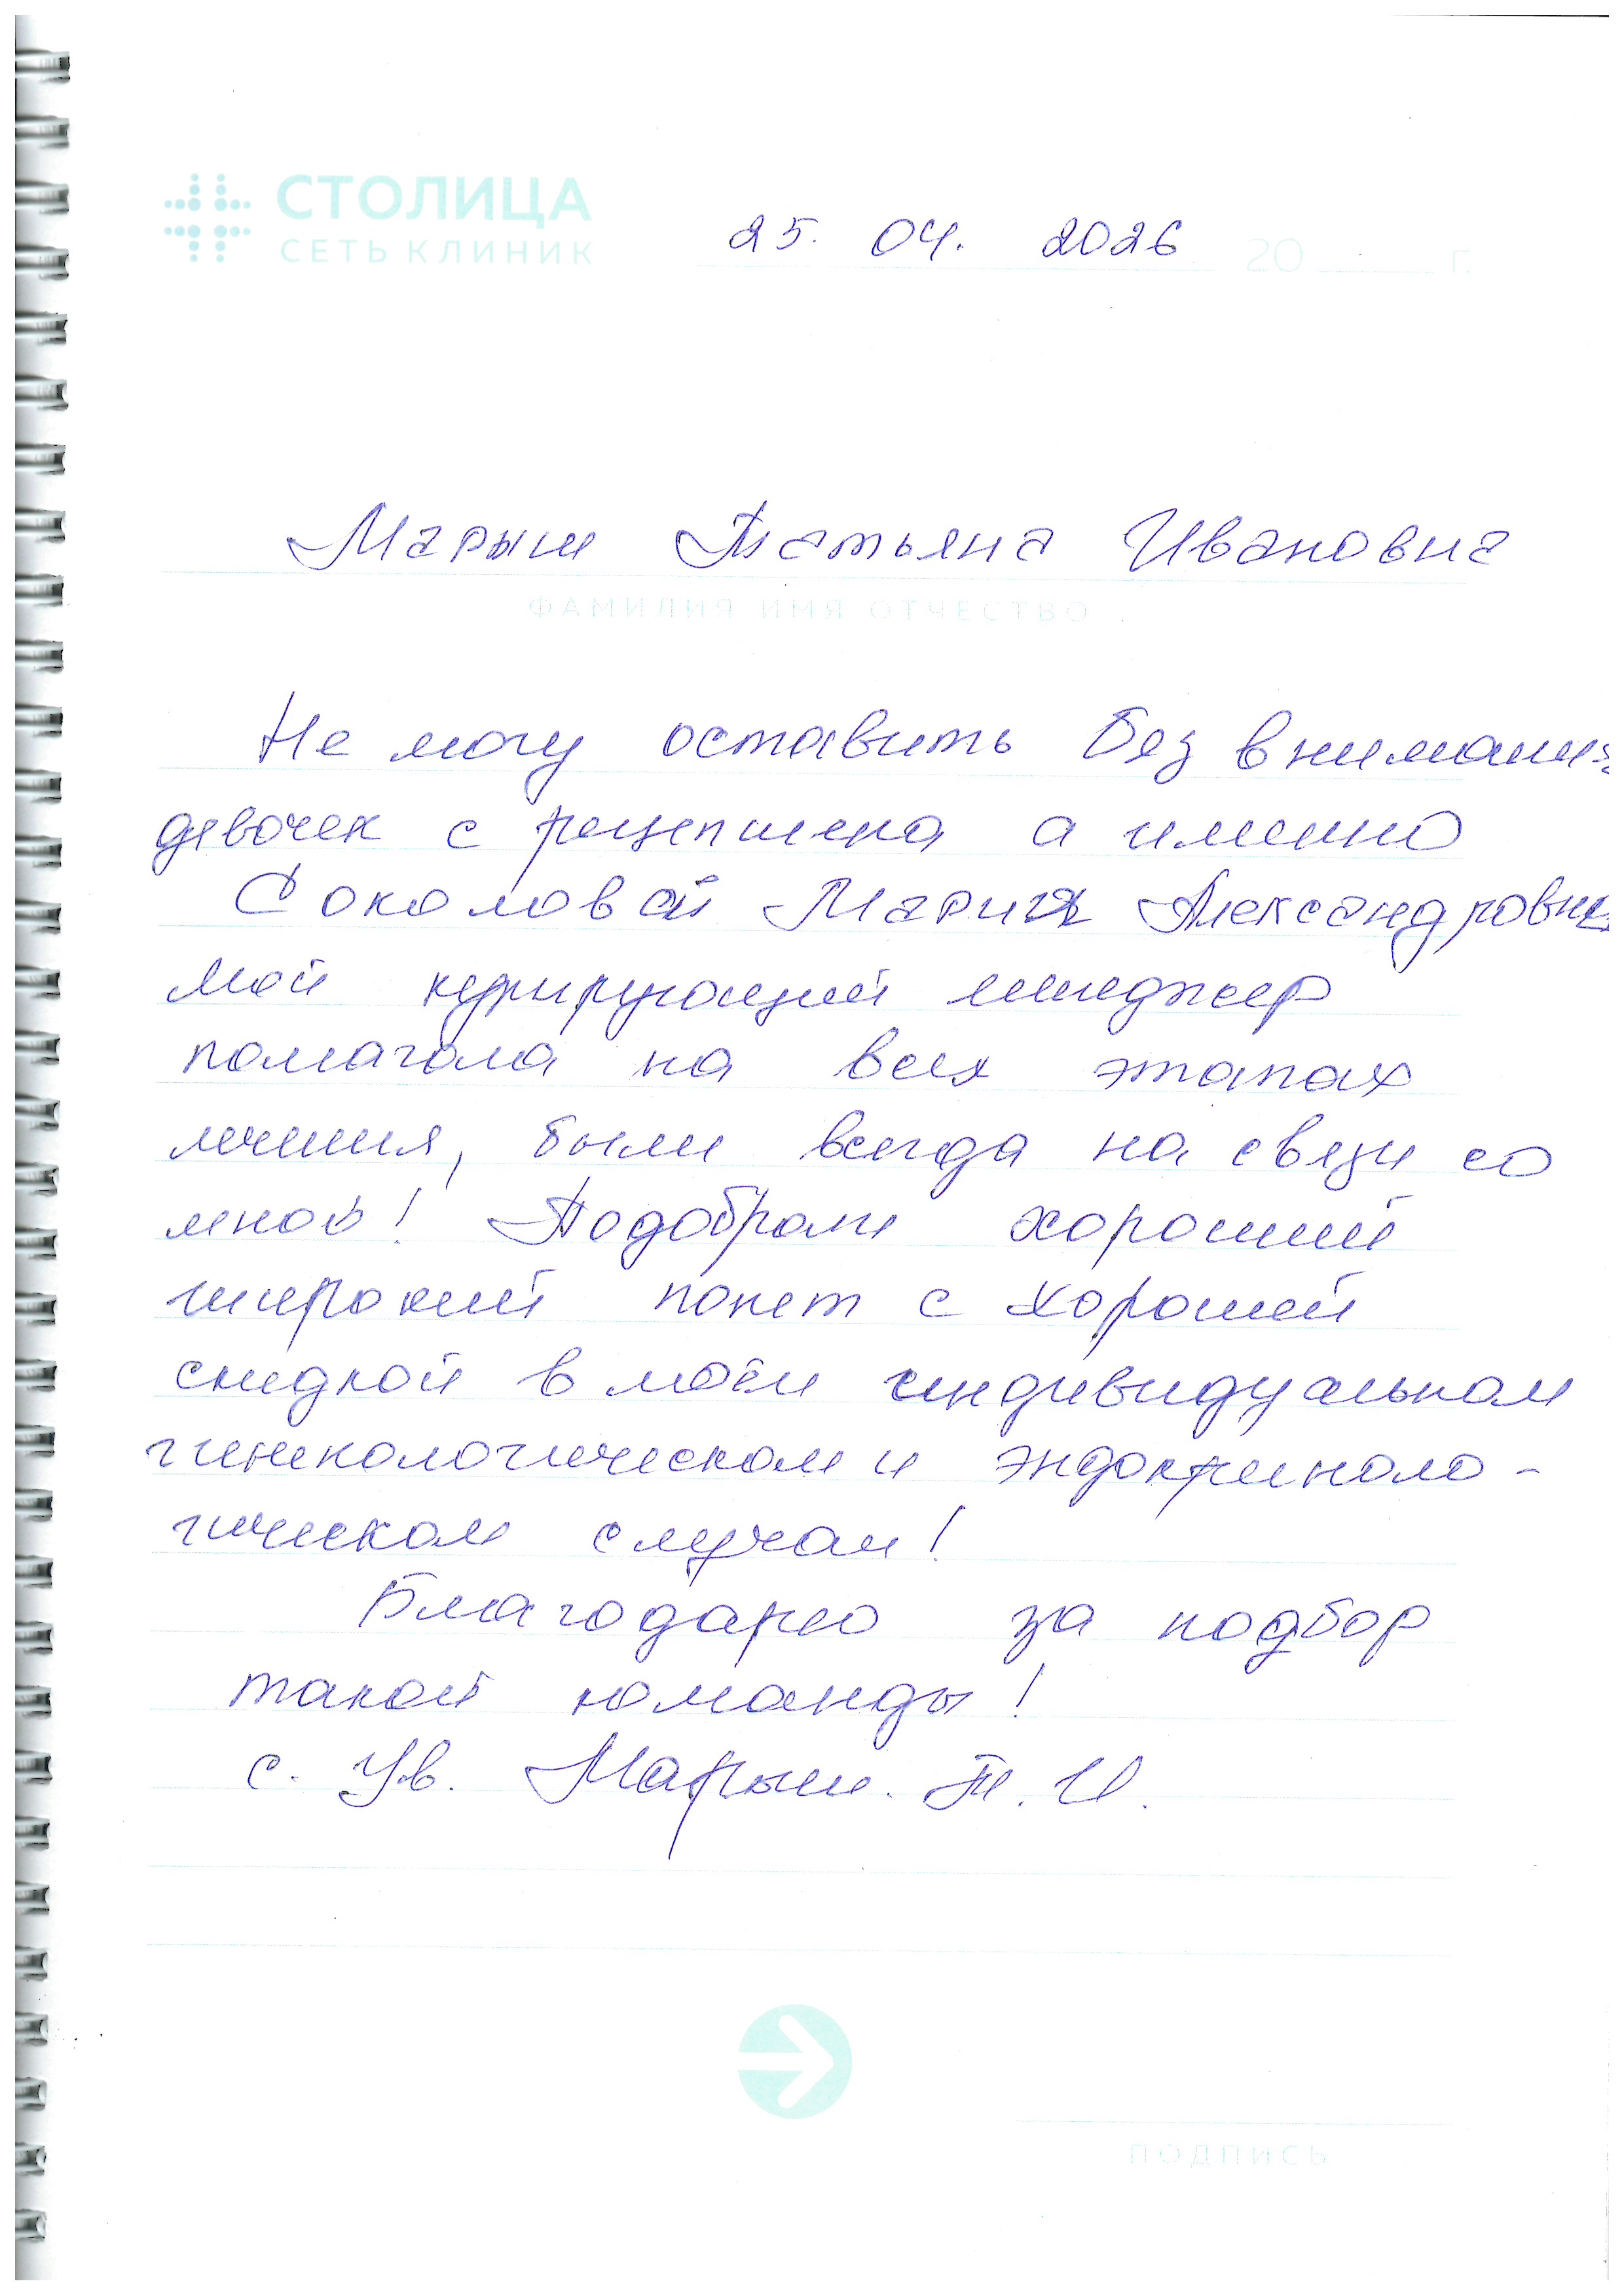 СТОЛИЦА
СЕТЬ КЛИНИК
25. 04. 2026 20 г.
Марыш Татьяна Ивановна
ФАМИЛИЯ ИМЯ ОТЧЕСТВО
Не могу оставить без внимания
девочек с рецепшена а именно
Соколовой Мария Александровна
мой курирующий менеджер
помагала на всех этапах
лечения, были всегда на связи со
мной! Подобрали хороший
широкий пакет с хорошей
скидкой в моём индивидуальном
гинекологическом и эндокриноло-
гическом случаи!
Благодарю за подбор
такой команды!
с. Ув. Марыш. Т. И.
ПОДПИСЬ